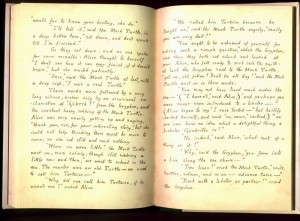 "wants for to know your history, she do."
"I'll tell it," said the Mock Turtle, in
a deep, hollow tone, "sit down, and don't speak
till I've finished."
So they sat down, and no one spoke
for some minutes: Alice thought to herself
"I don't see how it can ever finish, if it doesn't
begin," but she waited patiently.
"Once," said the Mock Turtle at last, with
a deep sigh, "I was a real Turtle."
These words were followed by a very
long silence, broken only by an occasional ex-
clamation of "hjckrrh!" from the Gryphon, and
the constant heavy sobbing of the Mock Turtle.
Alice was very nearly getting up and saying,
"thank you, sir, for your interesting story," but she
could not help thinking there must be more to
come, so she sat still and said nothing.
"When we were little," the Mock Turtle
went on, more calmly, though still sobbing a
little now and then, "we went to school in the
sea. The master was an old Turtle — we used
to call him Tortoise —"
"Why did you call him Tortoise, if he
wasn't one?" asked Alice.
"We called him Tortoise because he
taught us," said the Mock Turtle angrily, "really
you are very dull!"
"You ought to be ashamed of yourself for
asking such a simple question," added the Gryphon,
and then they both sat silent and looked at
poor Alice, who felt ready to sink into the earth:
at last the Gryphon said to the Mock Turtle,
"get on, old fellow! Don't be all day!" and the Mock
Turtle went on in these words:
"You may not have lived much under the
sea —" ("I haven't," said Alice,) "and perhaps you
were never even introduced to a lobster —"
(Alice began to say "I once tasted —" but hastily
checked herself, and said "no, never," instead,) "so
you can have no idea what a delightful thing a
Lobster Quadrille is!"
"No, indeed," said Alice, "what sort of a
thing is it?"
"Why," said the Gryphon, "you form into
a line along the sea shore —"
"Two lines!" cried the Mock Turtle, "seals,
turtles, salmon, and so on — advance twice —"
"Each with a lobster as partner!" cried
the Gryphon.